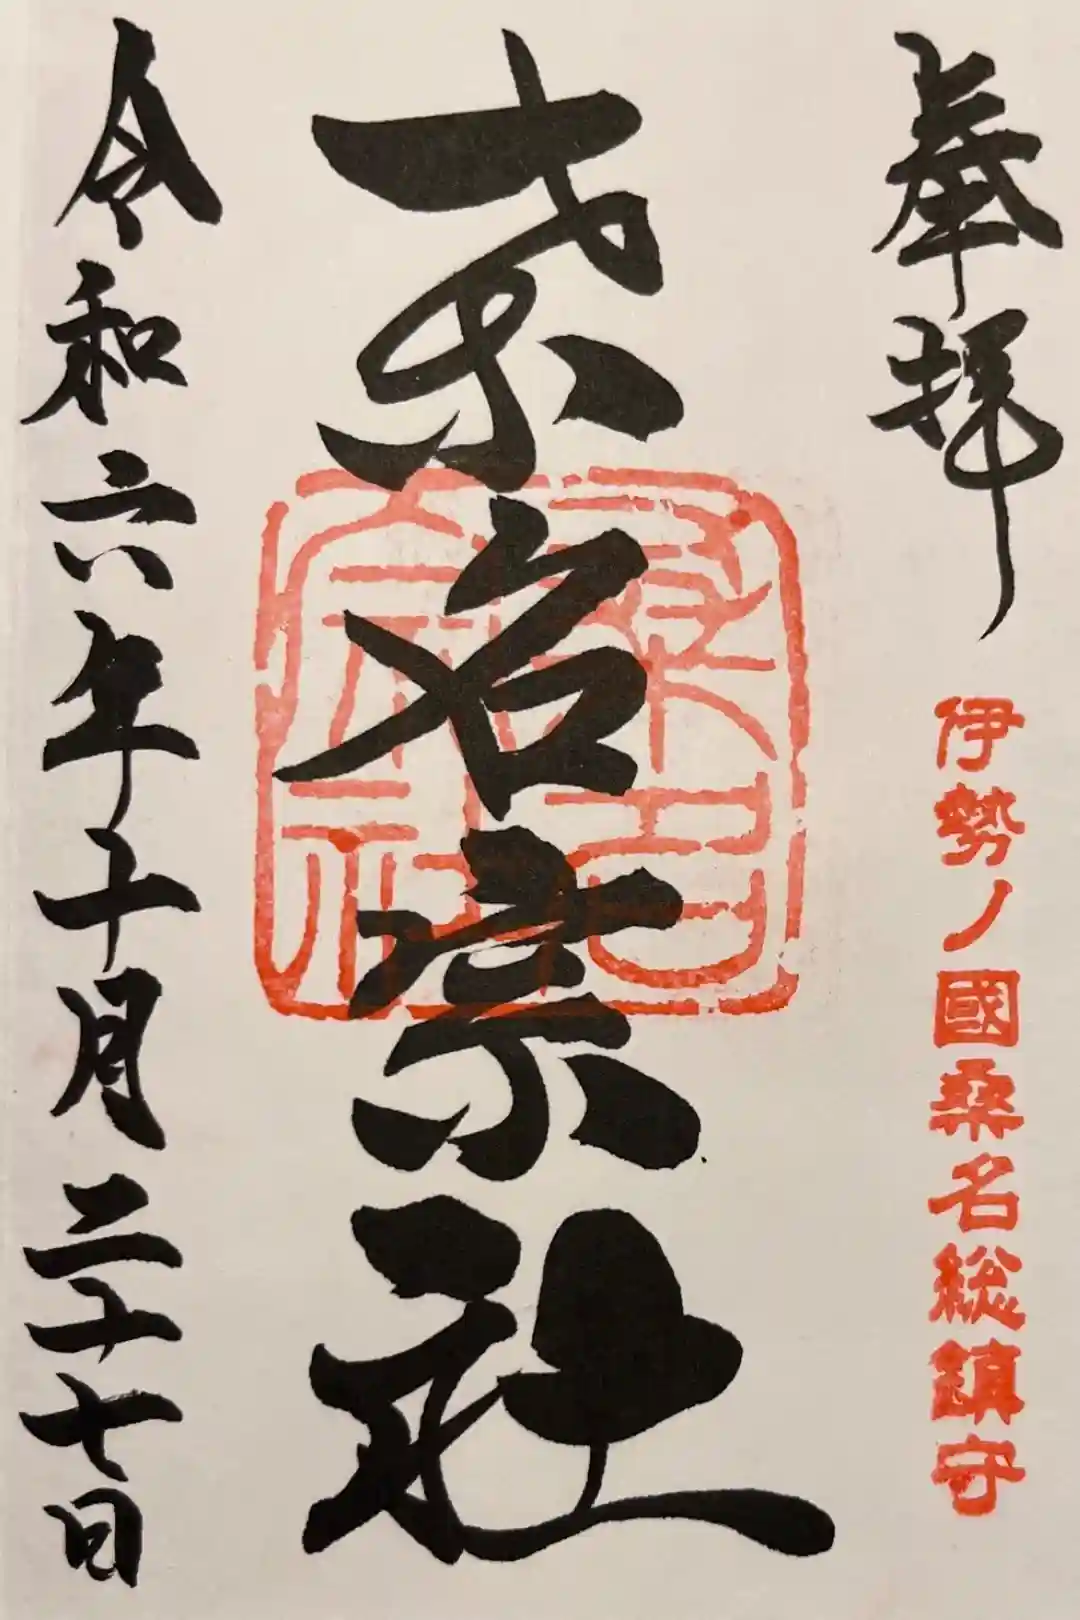 奉拝
伊勢ノ國桑名総鎮守
桑名宗社
桑名
宗社
令和六年十月二十七日